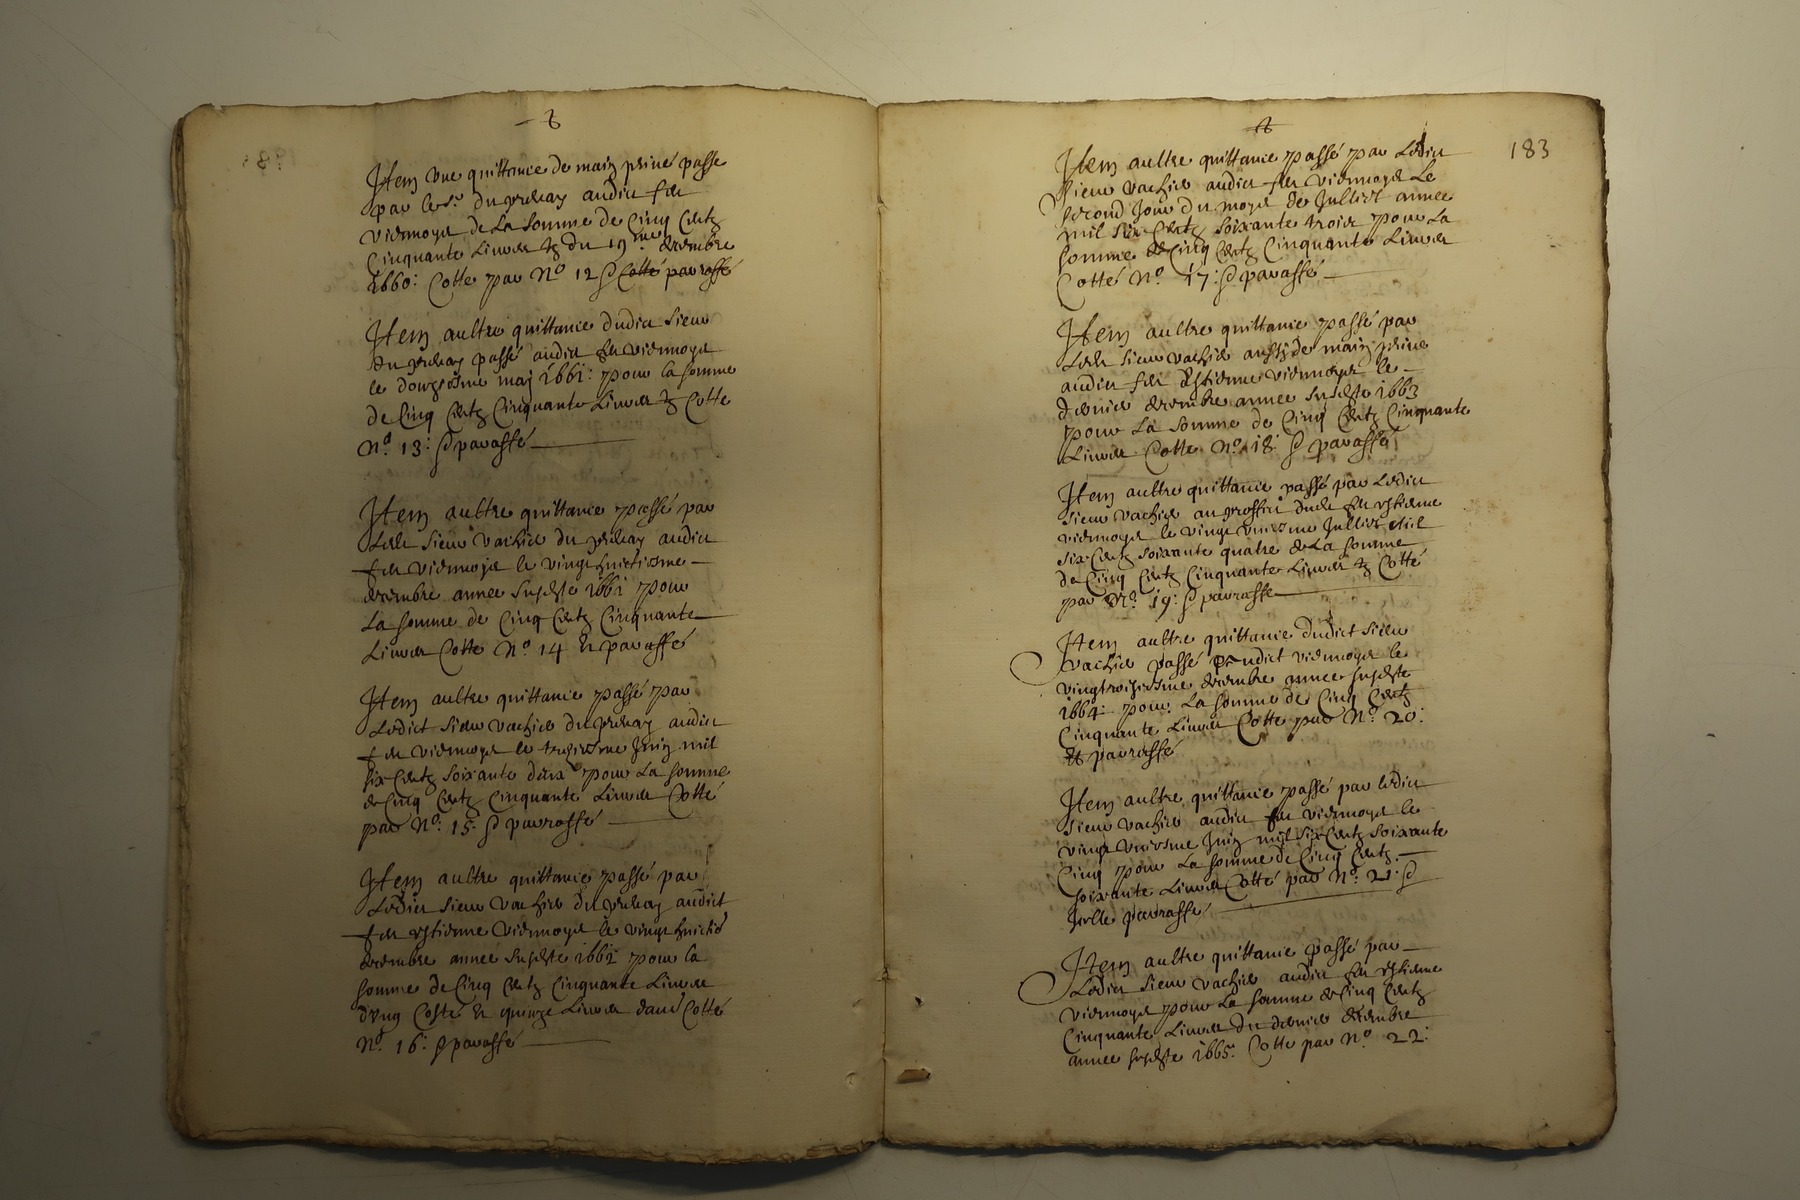 Item une quittance de main privé passe
par le sr. du prelay audict feu
viennoys de La Somme de Cinq Centz
Cinquante Livres tz du 19me decembre
1660: Cotte par No 12 & paraffé
Item aultre quittance dudict Sieur
du prelay passé audict feu viennoys
le douziesme may 1661: pour la somme
de Cinq Centz Cinquante Livres tz Cotte
No. 13: & paraffé
Item aultre quittance passé par
Ledict Sieur vachier du prelay audict
feu viennoys le vingt huictiesme
decembre annee susdicte 1661 pour
La somme de Cinq Centz Cinquante
Livres Cotte No. 14 & paraffé
Item aultre quittance passé par
Ledict Sieur vachier du prelay audict
feu viennoys le treziesme Juin mil
six Centz soixante deux pour La somme
de Cinq Centz Cinquante Livres Cotté
par No. 15. & parraffé
Item aultre quittance passé par
Ledict Sieur vachier du prelay audict
feu estienne viennoys le vingt huictie
decembre annee susdicte 1662 pour la
somme de Cinq Centz Cinquante Livres
dung Costé & quinze Livres Cotté
No. 16: & paraffé
183
Item aultre quittance passé par Ledict
Sieur vachier audict feu viennoys Le
second Jour du moys de Julliet annee
mil six Centz soixante trois pour La
somme de Cinq Centz Cinquante Livres
Cotté No. 17: & paraffé
Item aultre quittance passé par
Ledict Sieur vachier de main prive
audict feu Estienne viennoys le
dernier decembre annee susdicte 1663
pour La Somme de Cinq Centz Cinquante
Livres Cotte No. 18: & paraffé
Item aultre quittance passé par Ledict
Sieur vachier au proffict dudict feu estienne
viennoys le vingt uniesme Julliet mil
six Centz soixante quatre de La somme
de Cinq Centz Cinquante Livres tz Cotté
par No. 19: & parraffe
Item aultre quittance dudict Sieur
vachier passé audict viennoys le
vingtroisiesme decembre annee susdicte
1664 pour La somme de Cinq Centz
Cinquante Livres Cotte par No. 20:
& parraffé
Item aultre quittance passé par ledict
Sieur vachier audict feu viennoys le
vingt uniesme Juin mil six Centz soixante
Cinq pour La somme de Cinq Centz
soixante Livres Cotté par No. 21: &
parraffé
Item aultre quittance passé par
Ledict Sieur vachier audict feu estienne
viennoys pour La somme de Cinq Centz
Cinquante Livres du dernier decembre
annee susdicte 1665. Cotte par No. 22: